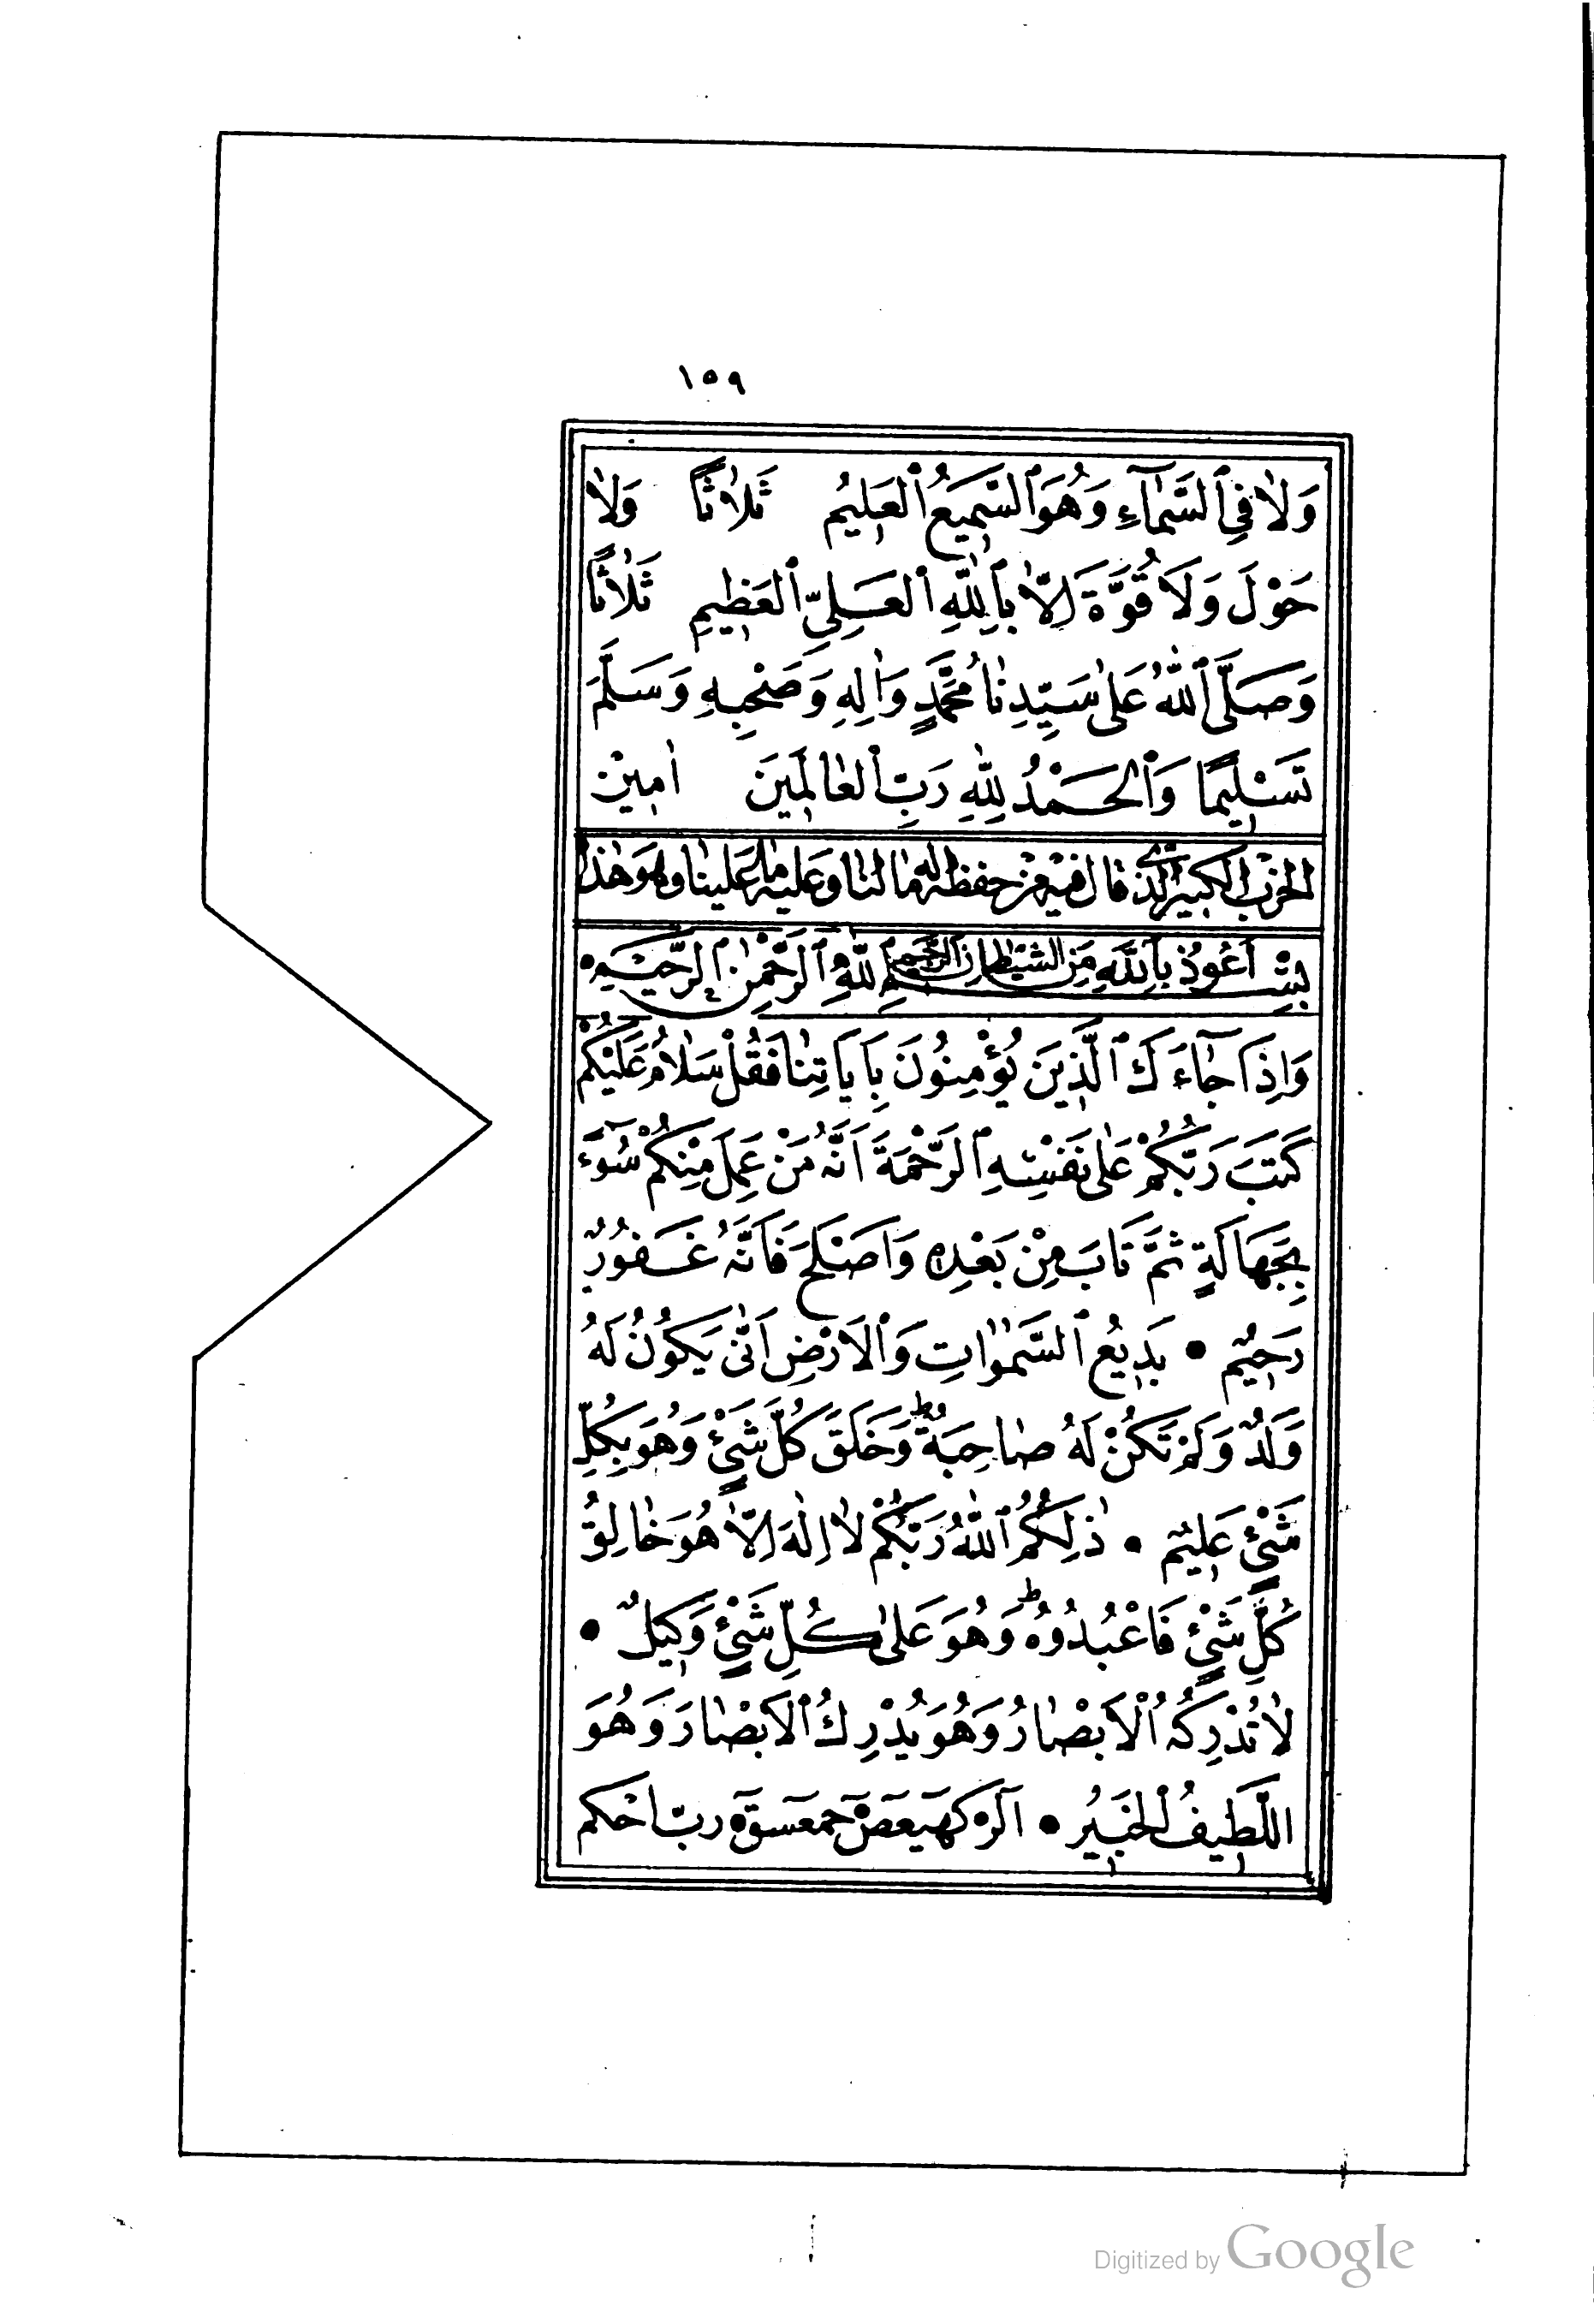 ١٥٩
وَلَا فِي ٱلسَّمَآءِ وَهُوَ ٱلسَّمِيعُ ٱلْعَلِيمُ ثَلَاثًا وَلَا
حَوْلَ وَلَا قُوَّةَ اِلَّا بِٱللّٰهِ ٱلْعَلِيِّ ٱلْعَظِيمِ ثَلَاثًا
وَصَلَّى ٱللّٰهُ عَلٰى سَيِّدِنَا مُحَمَّدٍ وَاٰلِهِ وَصَحْبِهِ وَسَلَّمَ
تَسْلِيمًا وَٱلْحَمْدُ لِلّٰهِ رَبِّ ٱلْعَالَمِينَ اٰمِيْنْ
الحزب الكبير الذى قال فيه من حفظه له مالنا وعليه ما علينا وهو هذا
اَعُوذُ بِٱللّٰهِ مِنَ الشَّيْطَانِ ٱلرَّجِيمِ
بِسْمِ ٱللّٰهِ ٱلرَّحْمٰنِ ٱلرَّحِيمِ
وَاِذَا جَآءَكَ ٱلَّذِينَ يُؤْمِنُونَ بِاٰيَاتِنَا فَقُلْ سَلَامٌ عَلَيْكُمْ
كَتَبَ رَبُّكُمْ عَلٰى نَفْسِهِ ٱلرَّحْمَةَ اَنَّهُ مَنْ عَمِلَ مِنْكُمْ سُوٓءً
بِجَهَالَةٍ ثُمَّ تَابَ مِنْ بَعْدِهِ وَاَصْلَحَ فَاَنَّهُ غَفُورٌ
رَحِيمٌ • بَدِيعُ ٱلسَّمٰوَاتِ وَٱلْاَرْضِ اَنّٰى يَكُونُ لَهُ
وَلَدٌ وَلَمْ تَكُنْ لَهُ صَاحِبَةٌ ط وَخَلَقَ كُلَّ شَيْءٍ وَهُوَ بِكُلِّ
شَيْءٍ عَلِيمٌ • ذٰلِكُمُ ٱللّٰهُ رَبُّكُمْ لَا اِلٰهَ اِلَّا هُوَ خَالِقُ
كُلِّ شَيْءٍ فَاعْبُدُوهُ ط وَهُوَ عَلٰى كُلِّ شَيْءٍ وَكِيلٌ •
لَا تُدْرِكُهُ ٱلْاَبْصَارُ وَهُوَ يُدْرِكُ ٱلْاَبْصَارَ وَهُوَ
اللَّطِيفُ ٱلْخَبِيرُ • آلر كٓهيعٓصٓ حمعٓسقٓ ربّ احكم
Digitized by Google